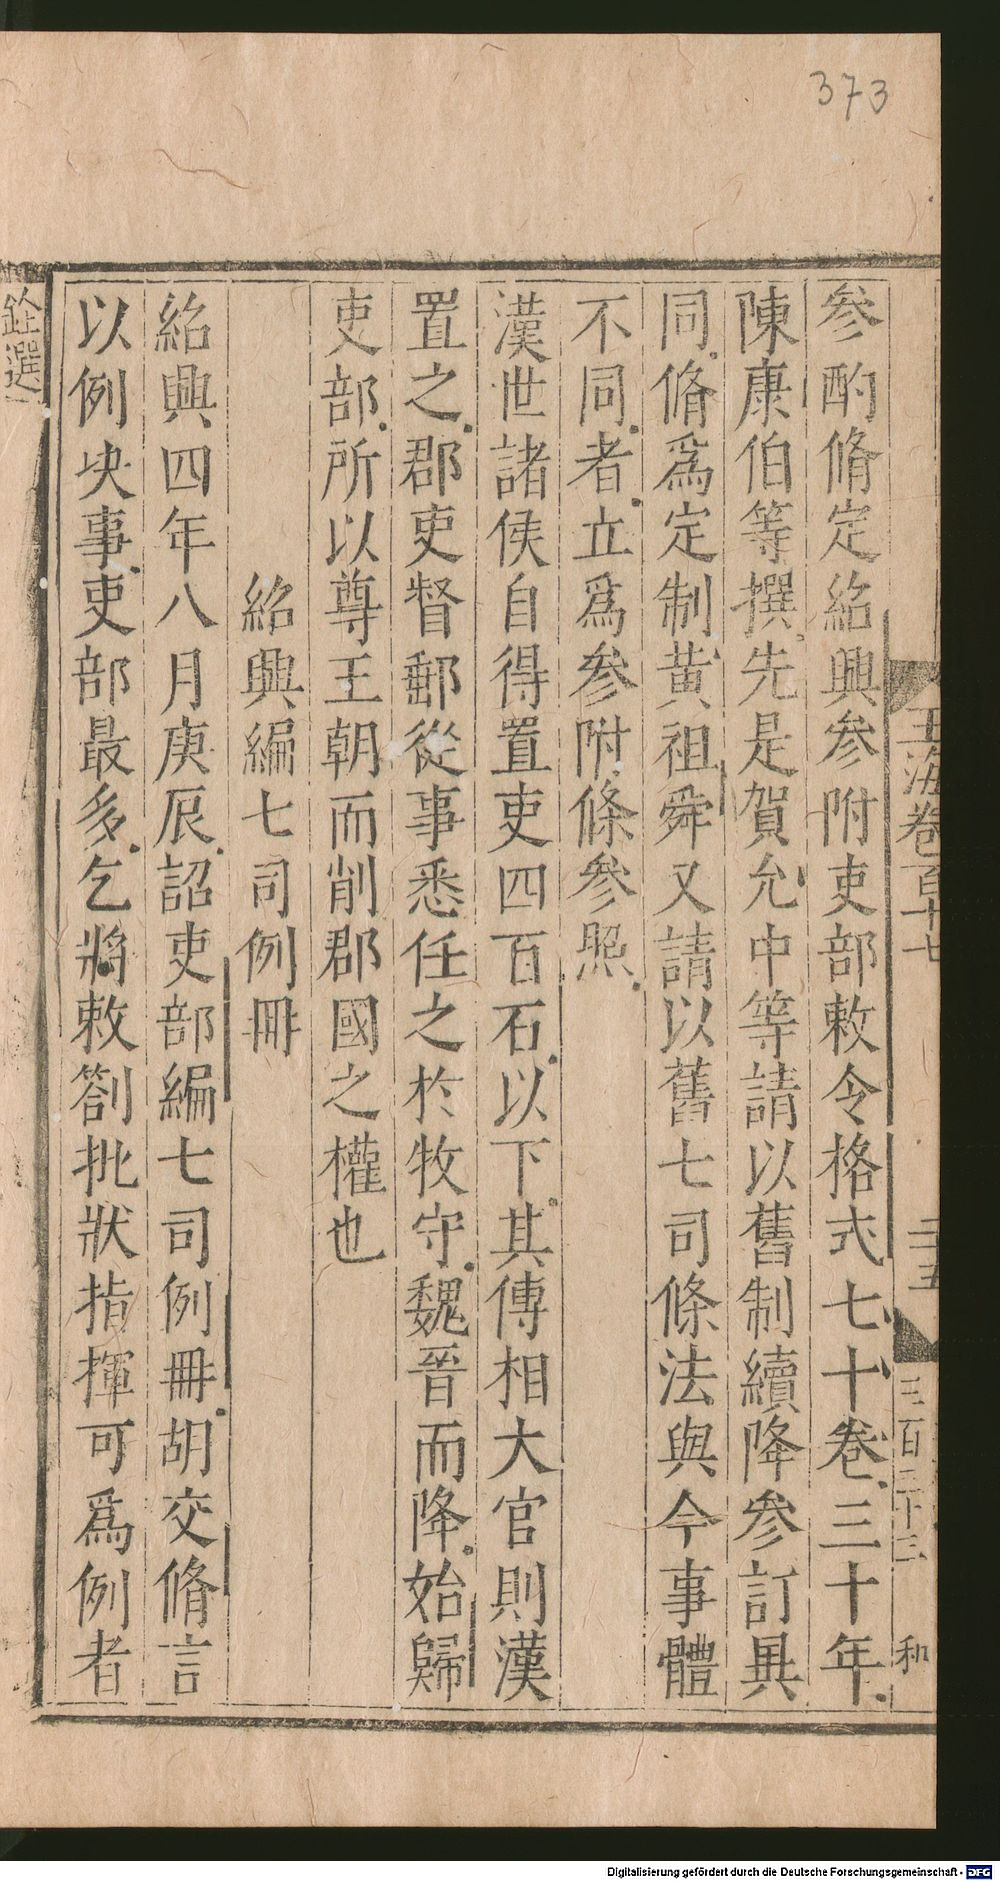 373
玉海卷百十七
三百三十三
和
參酌脩定紹興參附吏部敕令格式七十卷三十年
陳康伯等撰先是賀允中等請以舊制續降參訂異
同脩爲定制黄祖舜又請以舊七司條法與今事體
不同者立爲參附條參照
漢世諸侯自得置吏四百石以下其傅相大官則漢
置之郡吏督郵從事悉任之於牧守魏晉而降始歸
吏部所以尊王朝而削郡國之權也
紹興編七司例冊
紹興四年八月庚辰詔吏部編七司例冊胡交脩言
以例决事吏部最多乞將敕劄批狀指揮可爲例者
銓選
Digitalisierung gefördert durch die Deutsche Forschungsgemeinschaft - DFG